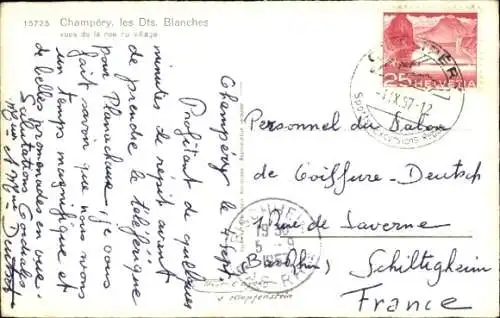 15725 Champéry, les Dts. Blanches
vues de la rue du village
Champéry le 4 Sept.
Profitant de quelques
minutes de répit avant
de prendre le téléférique
pour Planachaux, je vous
fait savoir que nous avons
un temps magnifique et
de belles promenades en vue.
Salutations Cordiales
Mr et Mme Deutsch
25 HELVETIA
CHAMPÉRY
-4.IX.57-12
Personnel du Salon
de Coiffure-Deutsch
1 Rue de Saverne
(Bas Rhin) Schiltigheim
France
19
5 - 9
1957